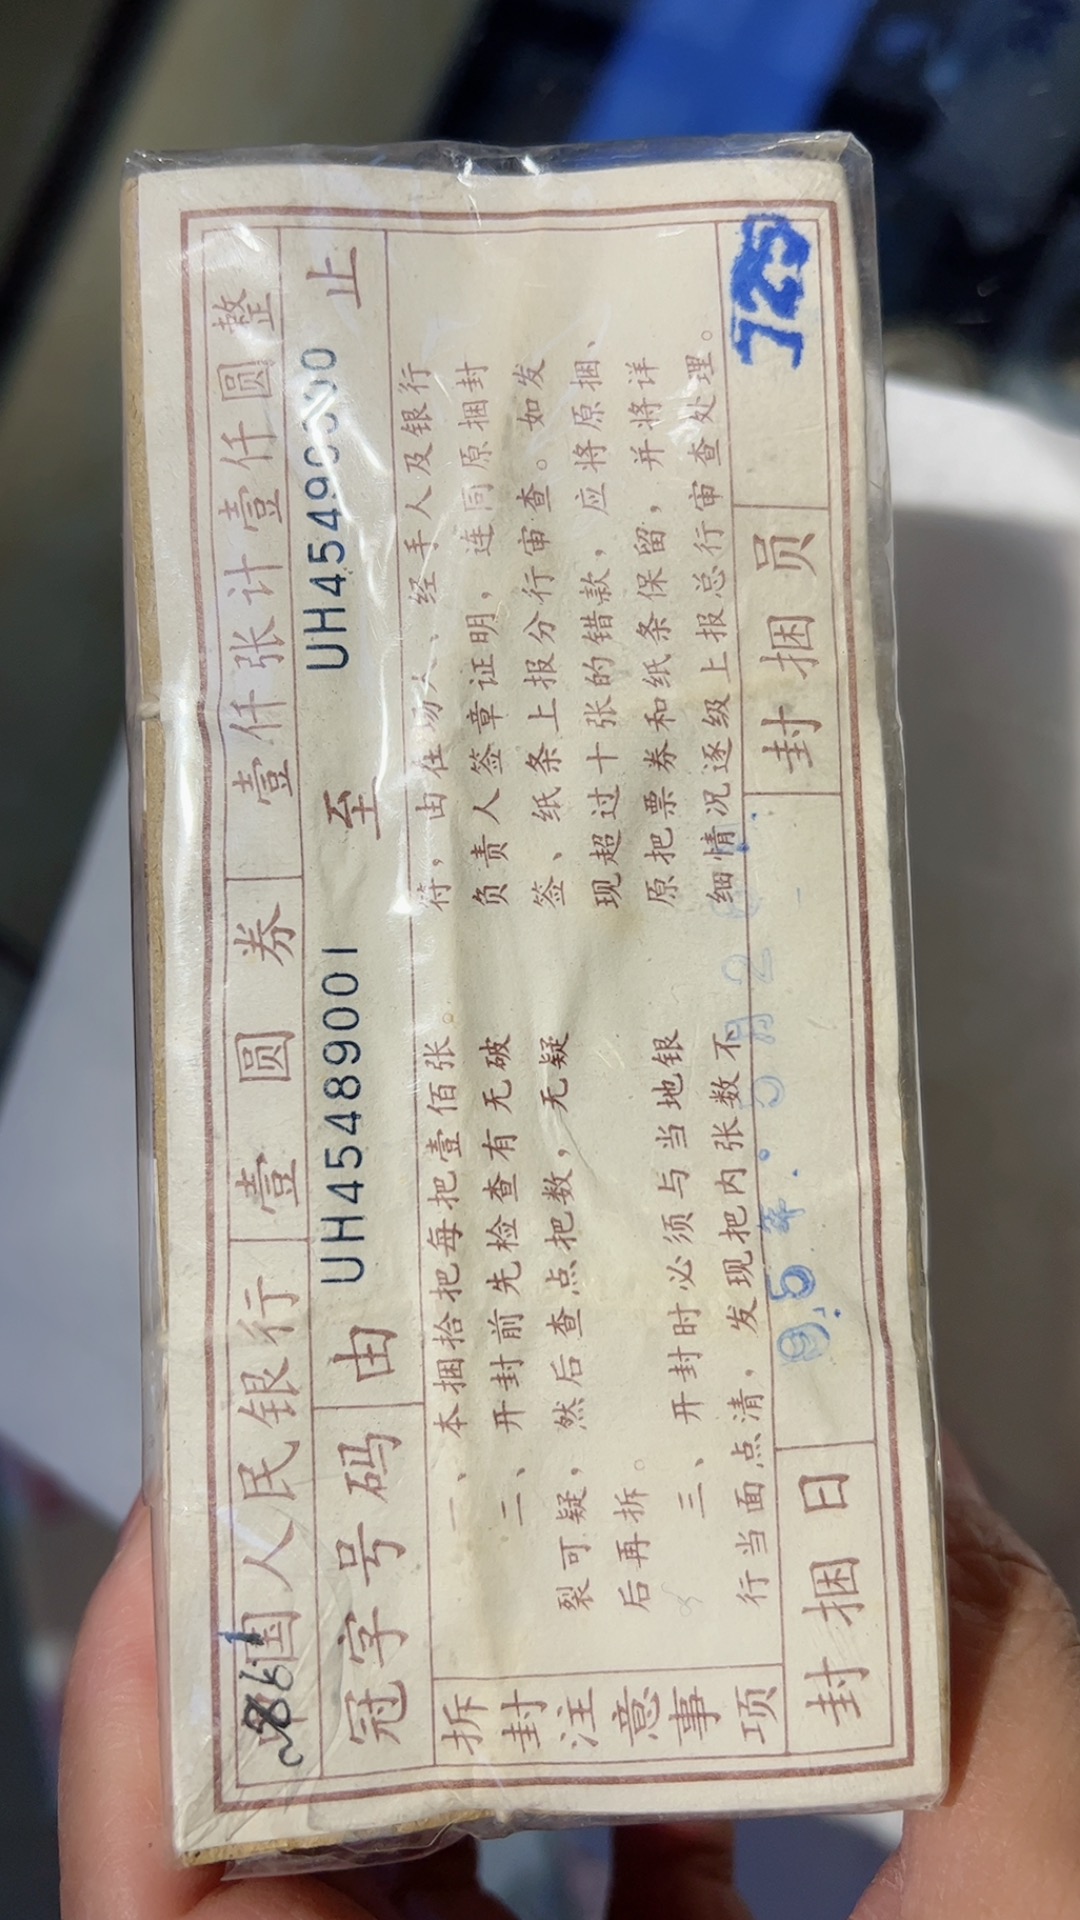 中国人民银行 壹圆券 壹仟张计壹仟圆整
冠字号码 由 UH4548901 至 UH4549000 止
拆封注意事项
一、本捆拾把每把壹佰张。
二、开封前先检查有无破
裂可疑，然后查点把数，无疑
后再拆。
三、开封时必须与当地银
行当面点清，发现把内张数不
符，由在场人、经手人及银行
负责人签章证明，连同原捆封
签、纸条上报分行审查。如发
现超过十张的错款，应将原捆、
原把票券和纸条保留，并将详
细情况逐级上报总行审查处理。
封捆日 95年
封捆员 725